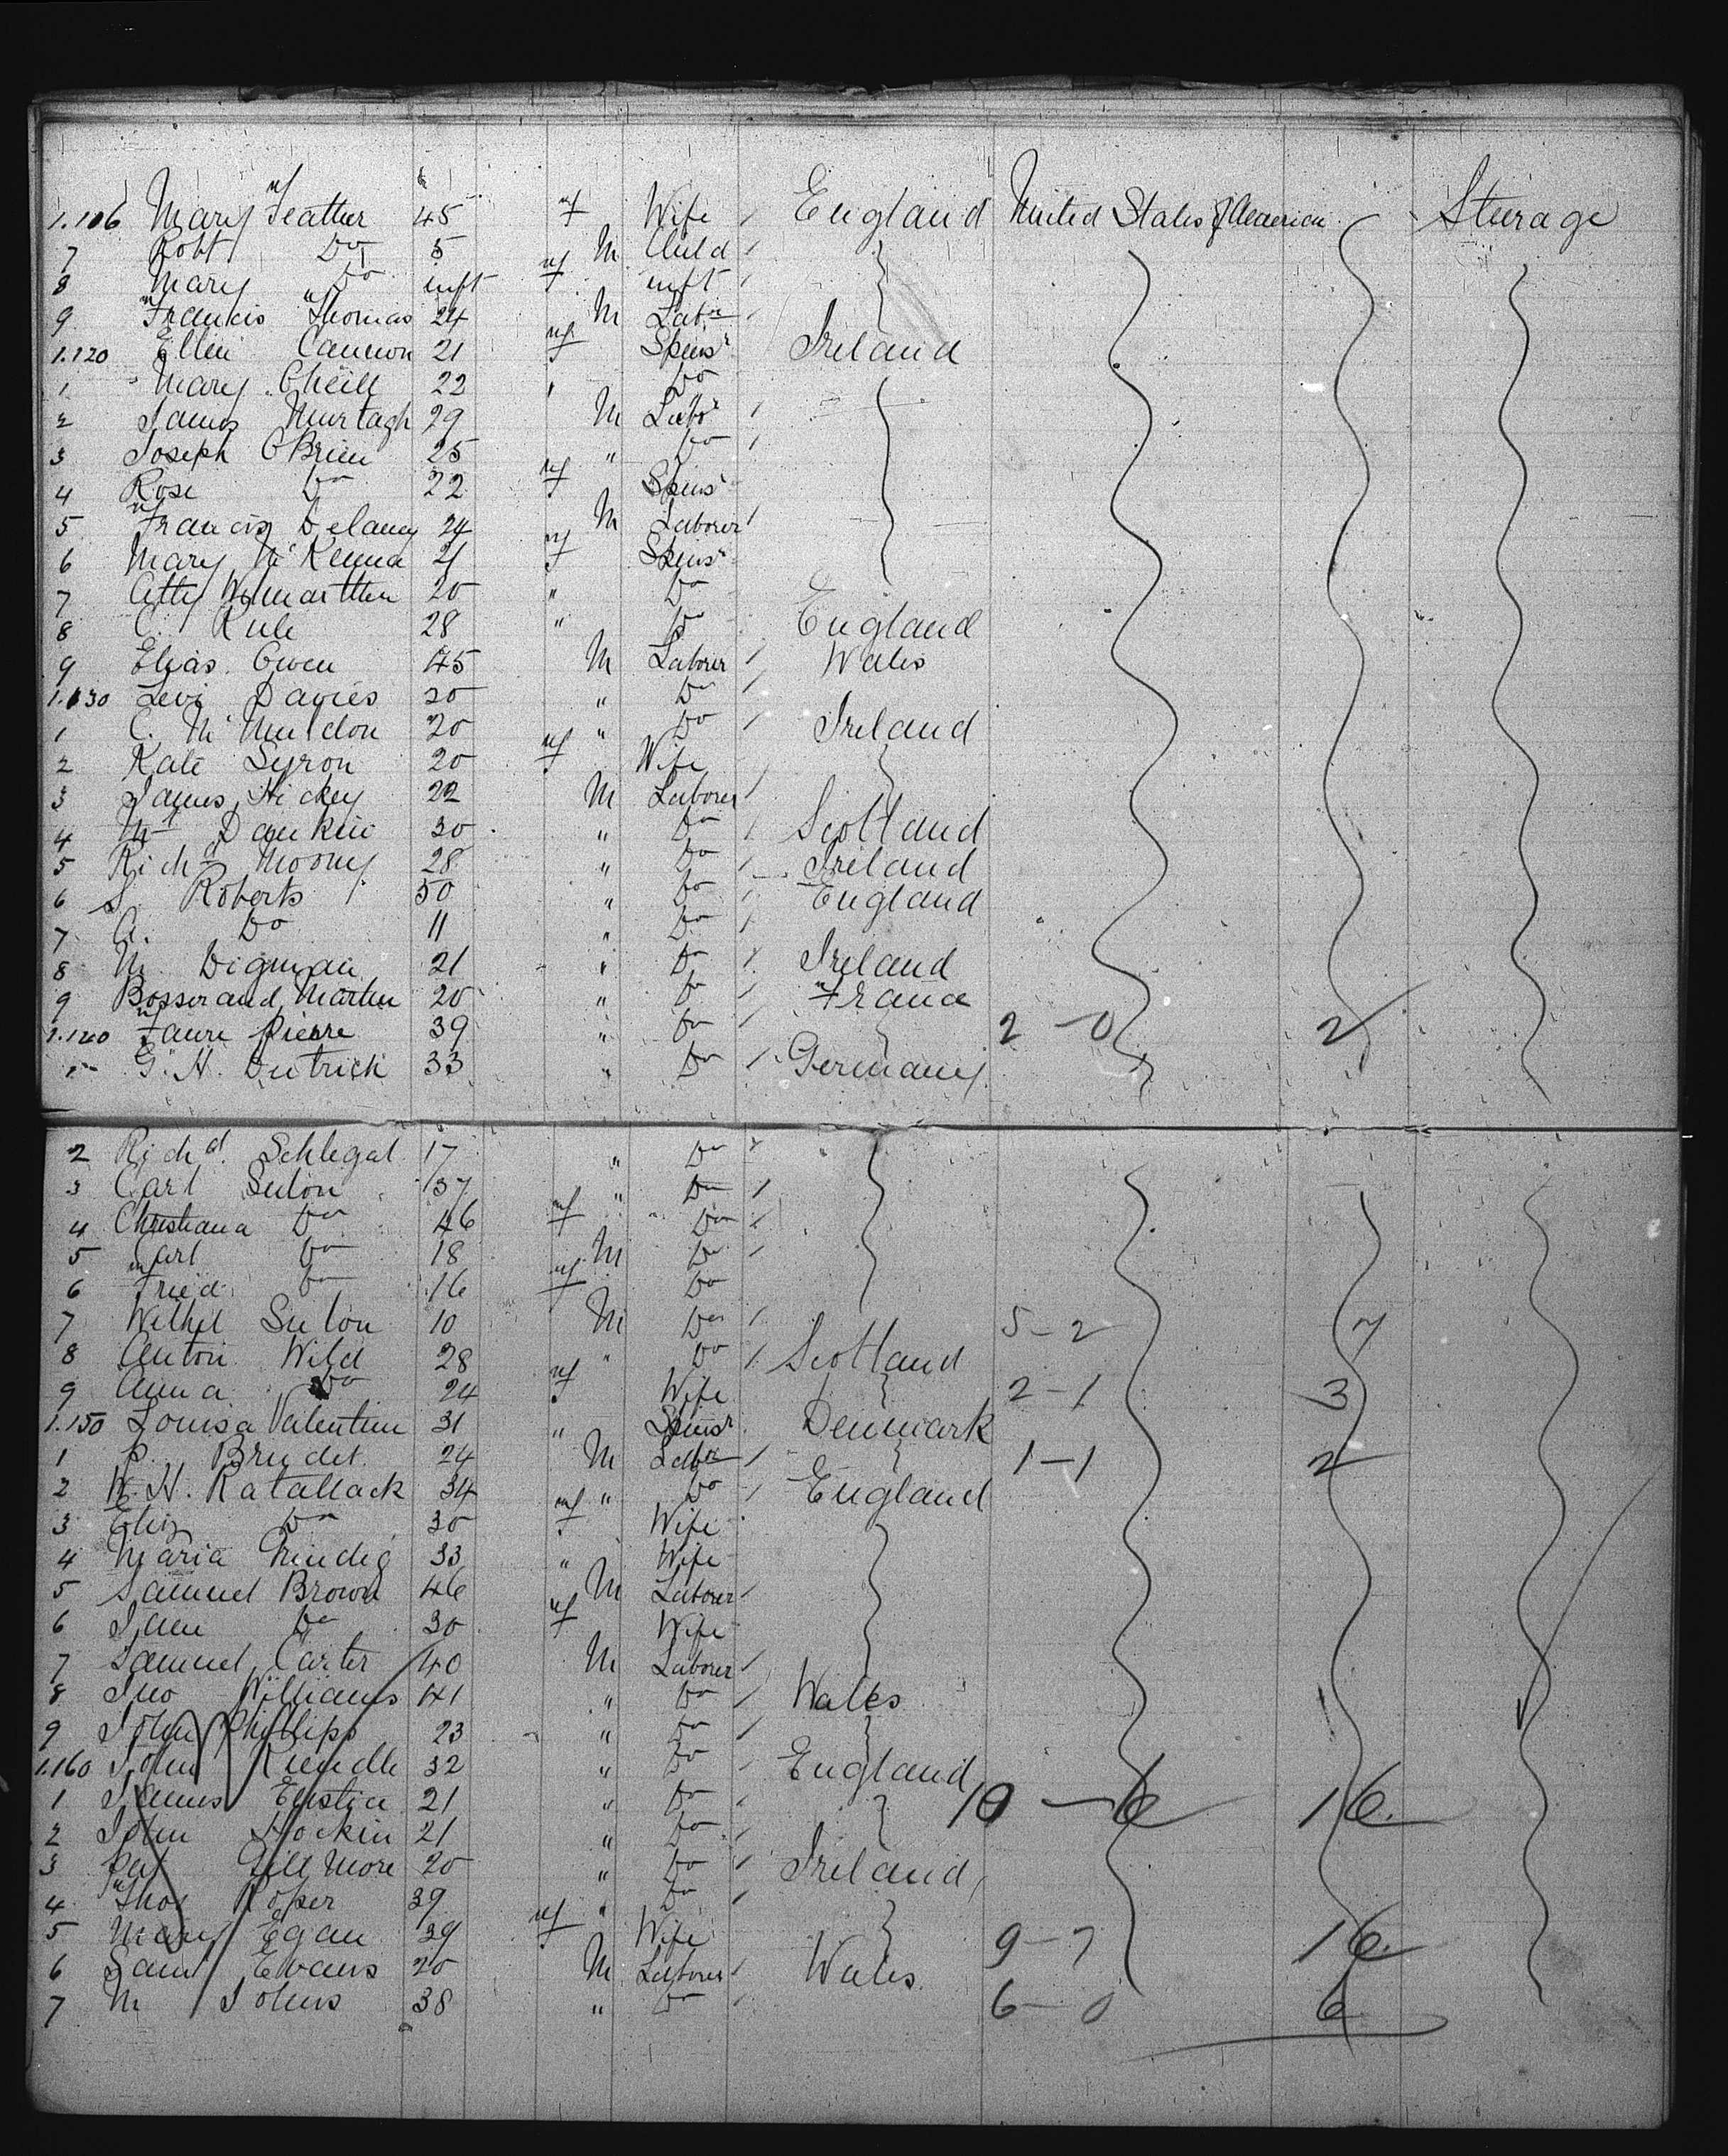 1.116 Mary Feather 45 f Wife England United States of America Steerage
7 Robt Do 5 M Child
8 Mary Do inft f inft
9 Francis Thomas 24 M Labr
1.120 Ellen Cannon 21 f Spinsr Ireland
1 Mary O'Neill 22 " Do
2 James Murtagh 29 M Labr
3 Joseph O'Brien 25 " Do
4 Rose Do 22 f Spinsr
5 Francis Delaney 24 M Laborer
6 Mary McKenna 21 f Spinsr
7 20 " Do
8 C. Rule 28 " Do England
9 Elias Owen 45 M Laborer Wales
1.130 Levi Davies 20 " Do
1 C. 20 " Do Ireland
2 Kate Syron 20 f Wife
3 James Hickey 22 M Laborer
4 30 " Do Scotland
5 Richd Moony 28 " Do Ireland
6 S. Roberts 50 " Do England
7 A. Do 11 " Do
8 M. Digman 21 " Do Ireland
9 Bosserand Martin 20 " Do France
1.140 Faure Pierre 39 " Do 2 - 0 2
1 G. H. Dutrich 33 " Do Germany
2 Richd. Schlegal 17 " Do
3 Carl 37 " Do
4 Christiana Do 46 f " Do
5 Carl Do 18 M Do
6 Fried. Do 16 f Do
7 10 M Do 5 - 2 7
8 Anton Wild 28 " Do Scotland
9 Anna Do 24 f Wife 2 - 1 3
1.150 Louisa Valentine 31 " Spinsr Denmark
1 P. 24 M Labr 1 - 1 2
2 W. H. Ratallack 34 " Do England
3 Eliz Do 30 f Wife
4 Maria 33 " Wife
5 Samuel Brown 46 M Laborer
6 Jane Do 30 f Wife
7 Samuel Carter 40 M Laborer
8 Jno Williams 41 " Do Wales
9 John Phillips 23 " Do
1.160 John 32 " Do England
1 James 21 " Do 10 - 6 16
2 John Hockin 21 " Do
3 Pat Gillmore 20 " Do Ireland
4 Thos Roper 39 " Do
5 Mary Egan 39 f Wife 9 - 7 16
6 Saml Evans 20 M Laborer Wales
7 M Johns 38 " Do 6 - 0 6